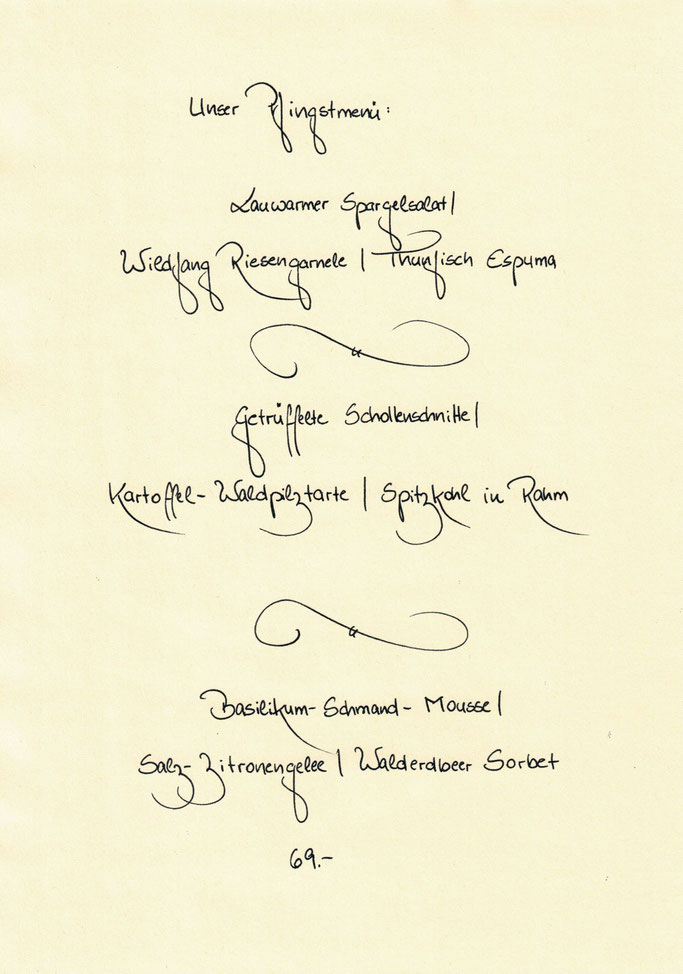 Unser Pfingstmenü:
Lauwarmer Spargelsalat |
Wildfang Riesengarnele | Thunfisch Espuma
Getrüffelte Schollenschnitte |
Kartoffel-Waldpilztarte | Spitzkohl in Rahm
Basilikum-Schmand-Mousse |
Salz-Zitronengelee | Walderdbeer Sorbet
69.-